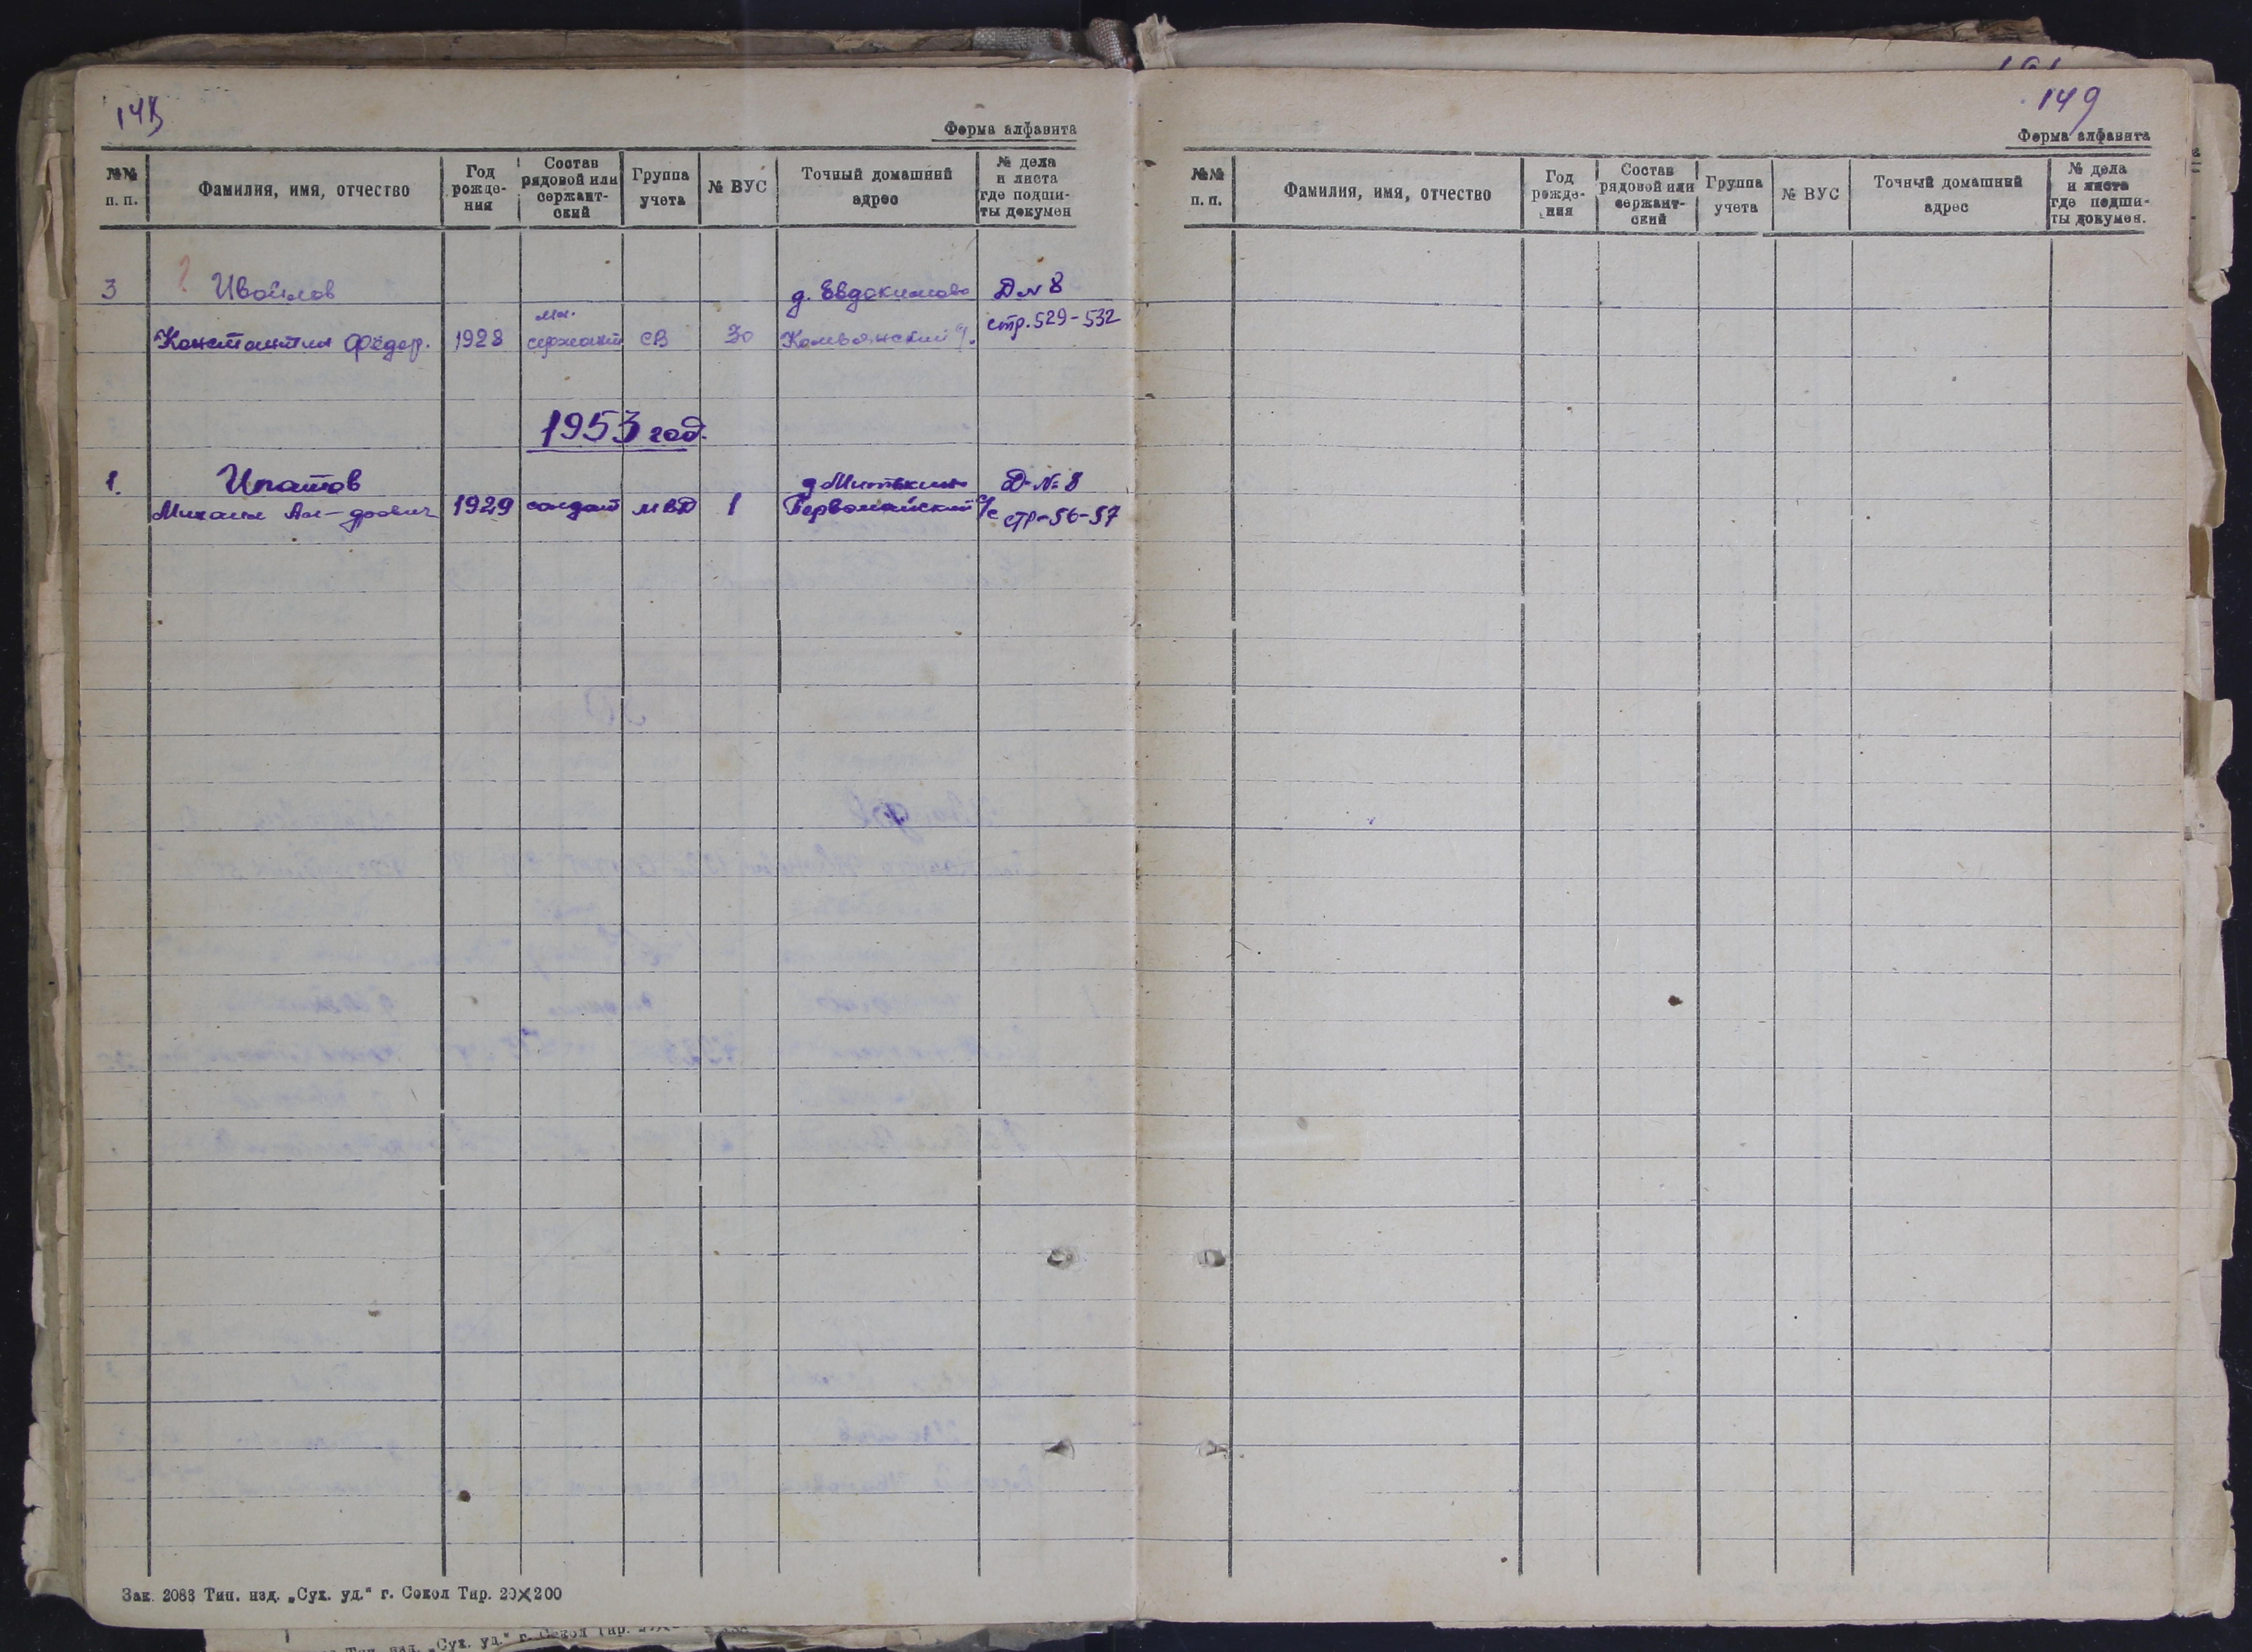 148
Форма алфавита
№№ п. п.
Фамилия, имя, отчество
Год рожде- ния
Состав рядовой или сержант- ский
Группа учета
№ ВУС
Точный домашний адрес
№ дела и листа где подши- ты докумен
3 ? Ивойлов д. Евдокимово Д № 8
мл.
Константин Фёдор. 1928 сержант СВ 30 стр. 529-532
1953 год.
1. Ипатов д Митькино Д-№ 8
Михаил Ал-дрович 1929 солдат МВД 1 Первомайский с/с стр-56-57
Зак. 2088 Тип. изд. „Сух. уд.“ г. Сокол Тир. 20×200
149
Форма алфавита
№№ п. п.
Фамилия, имя, отчество
Год рожде- ния
Состав рядовой или сержант- ский
Группа учета
№ ВУС
Точный домашний адрес
№ дела и листа где подши- ты докумен.